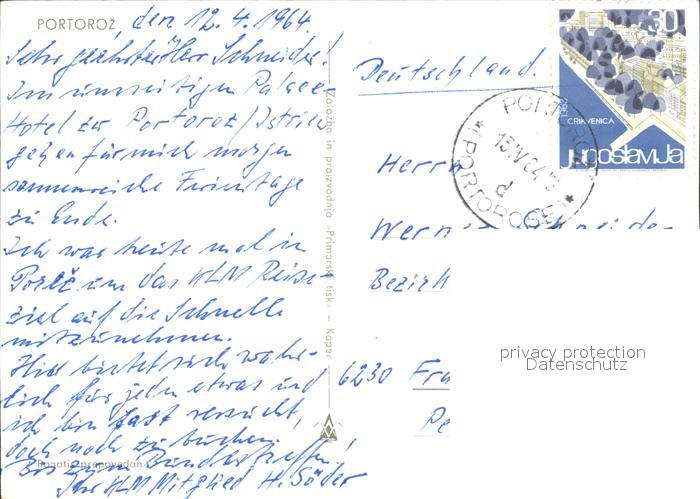 PORTOROŽ, den 12.4.1964.
Sehr geehrter Herr Schneider!
Im umseitigen Palace
Hotel zu Portoroz/Istrien
gehen für mich morgen
sonnenreiche Ferientage
zu Ende.
Ich war heute mal in
Poreč um das KLM Reise-
ziel auf die Schnelle
mitzunehmen.
Hier bietet sich wahr-
lich für jeden etwas und
ich bin fast versucht,
doch noch zu buchen.
Bis zum Bundestreffen!
Ihr KLM Mitglied H. Söder
Ponatis prepovedan
Založba in proizvodnja »Primorski tisk« — Koper
Deutschland.
30
1963
CRIKVENICA
jugoslavija
PORTOROŽ
13.IV.64
d
PORTOROSE
Herrn
Werner Schneider
Bezirk
6230 Fra
Pe
privacy protection
Datenschutz